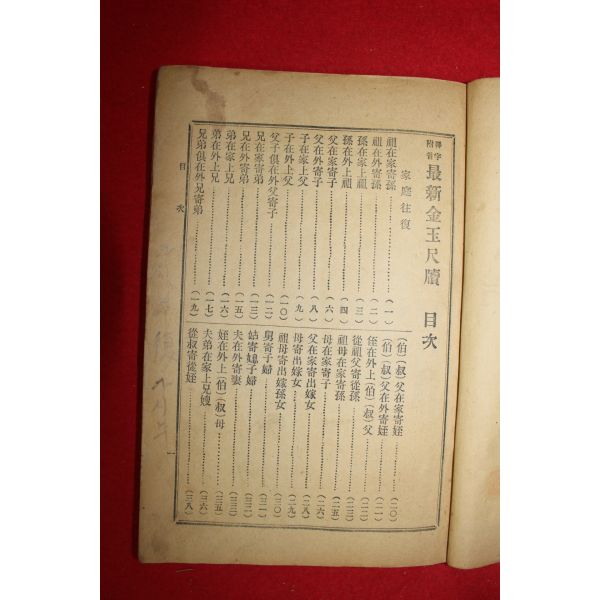 最新金玉尺牘 目次
家庭往復
祖在家寄孫 (一)
祖在外寄孫 (二)
孫在家上祖 (三)
孫在外上祖 (四)
父在家寄子 (六)
父在外寄子 (八)
子在家上父 (九)
子在外上父 (一〇)
父子俱在外父寄子 (一二)
兄在家寄弟 (一三)
兄在外寄弟 (一五)
弟在家上兄 (一六)
弟在外上兄 (一七)
兄弟俱在外兄寄弟 (一九)
(伯)(叔)父在家寄姪 (二〇)
(伯)(叔)父在外寄姪 (二一)
姪在外上(伯)(叔)父 (二二)
從祖父寄從孫 (二三)
祖母在家寄孫 (二五)
母在家寄子 (二六)
父在家寄出嫁女 (二八)
母寄出嫁女 (二九)
祖母寄出嫁孫女 (三〇)
舅寄子婦 (三一)
姑寄媳子婦 (三二)
夫在外寄妻 (三三)
姪在外上(伯)(叔)母 (三五)
夫弟在家上兄嫂 (三六)
從叔寄從姪 (三八)
目次
一